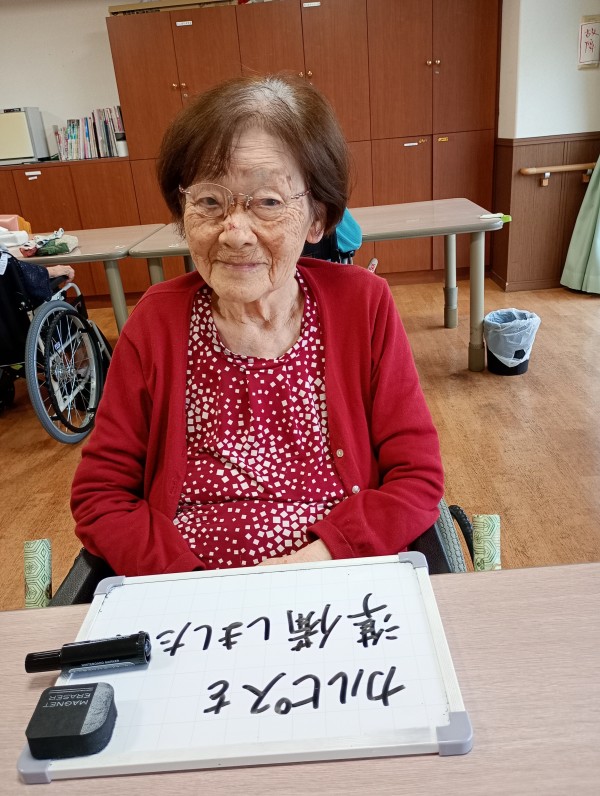 カルピスを
準備しました
MAGNET
ERASER